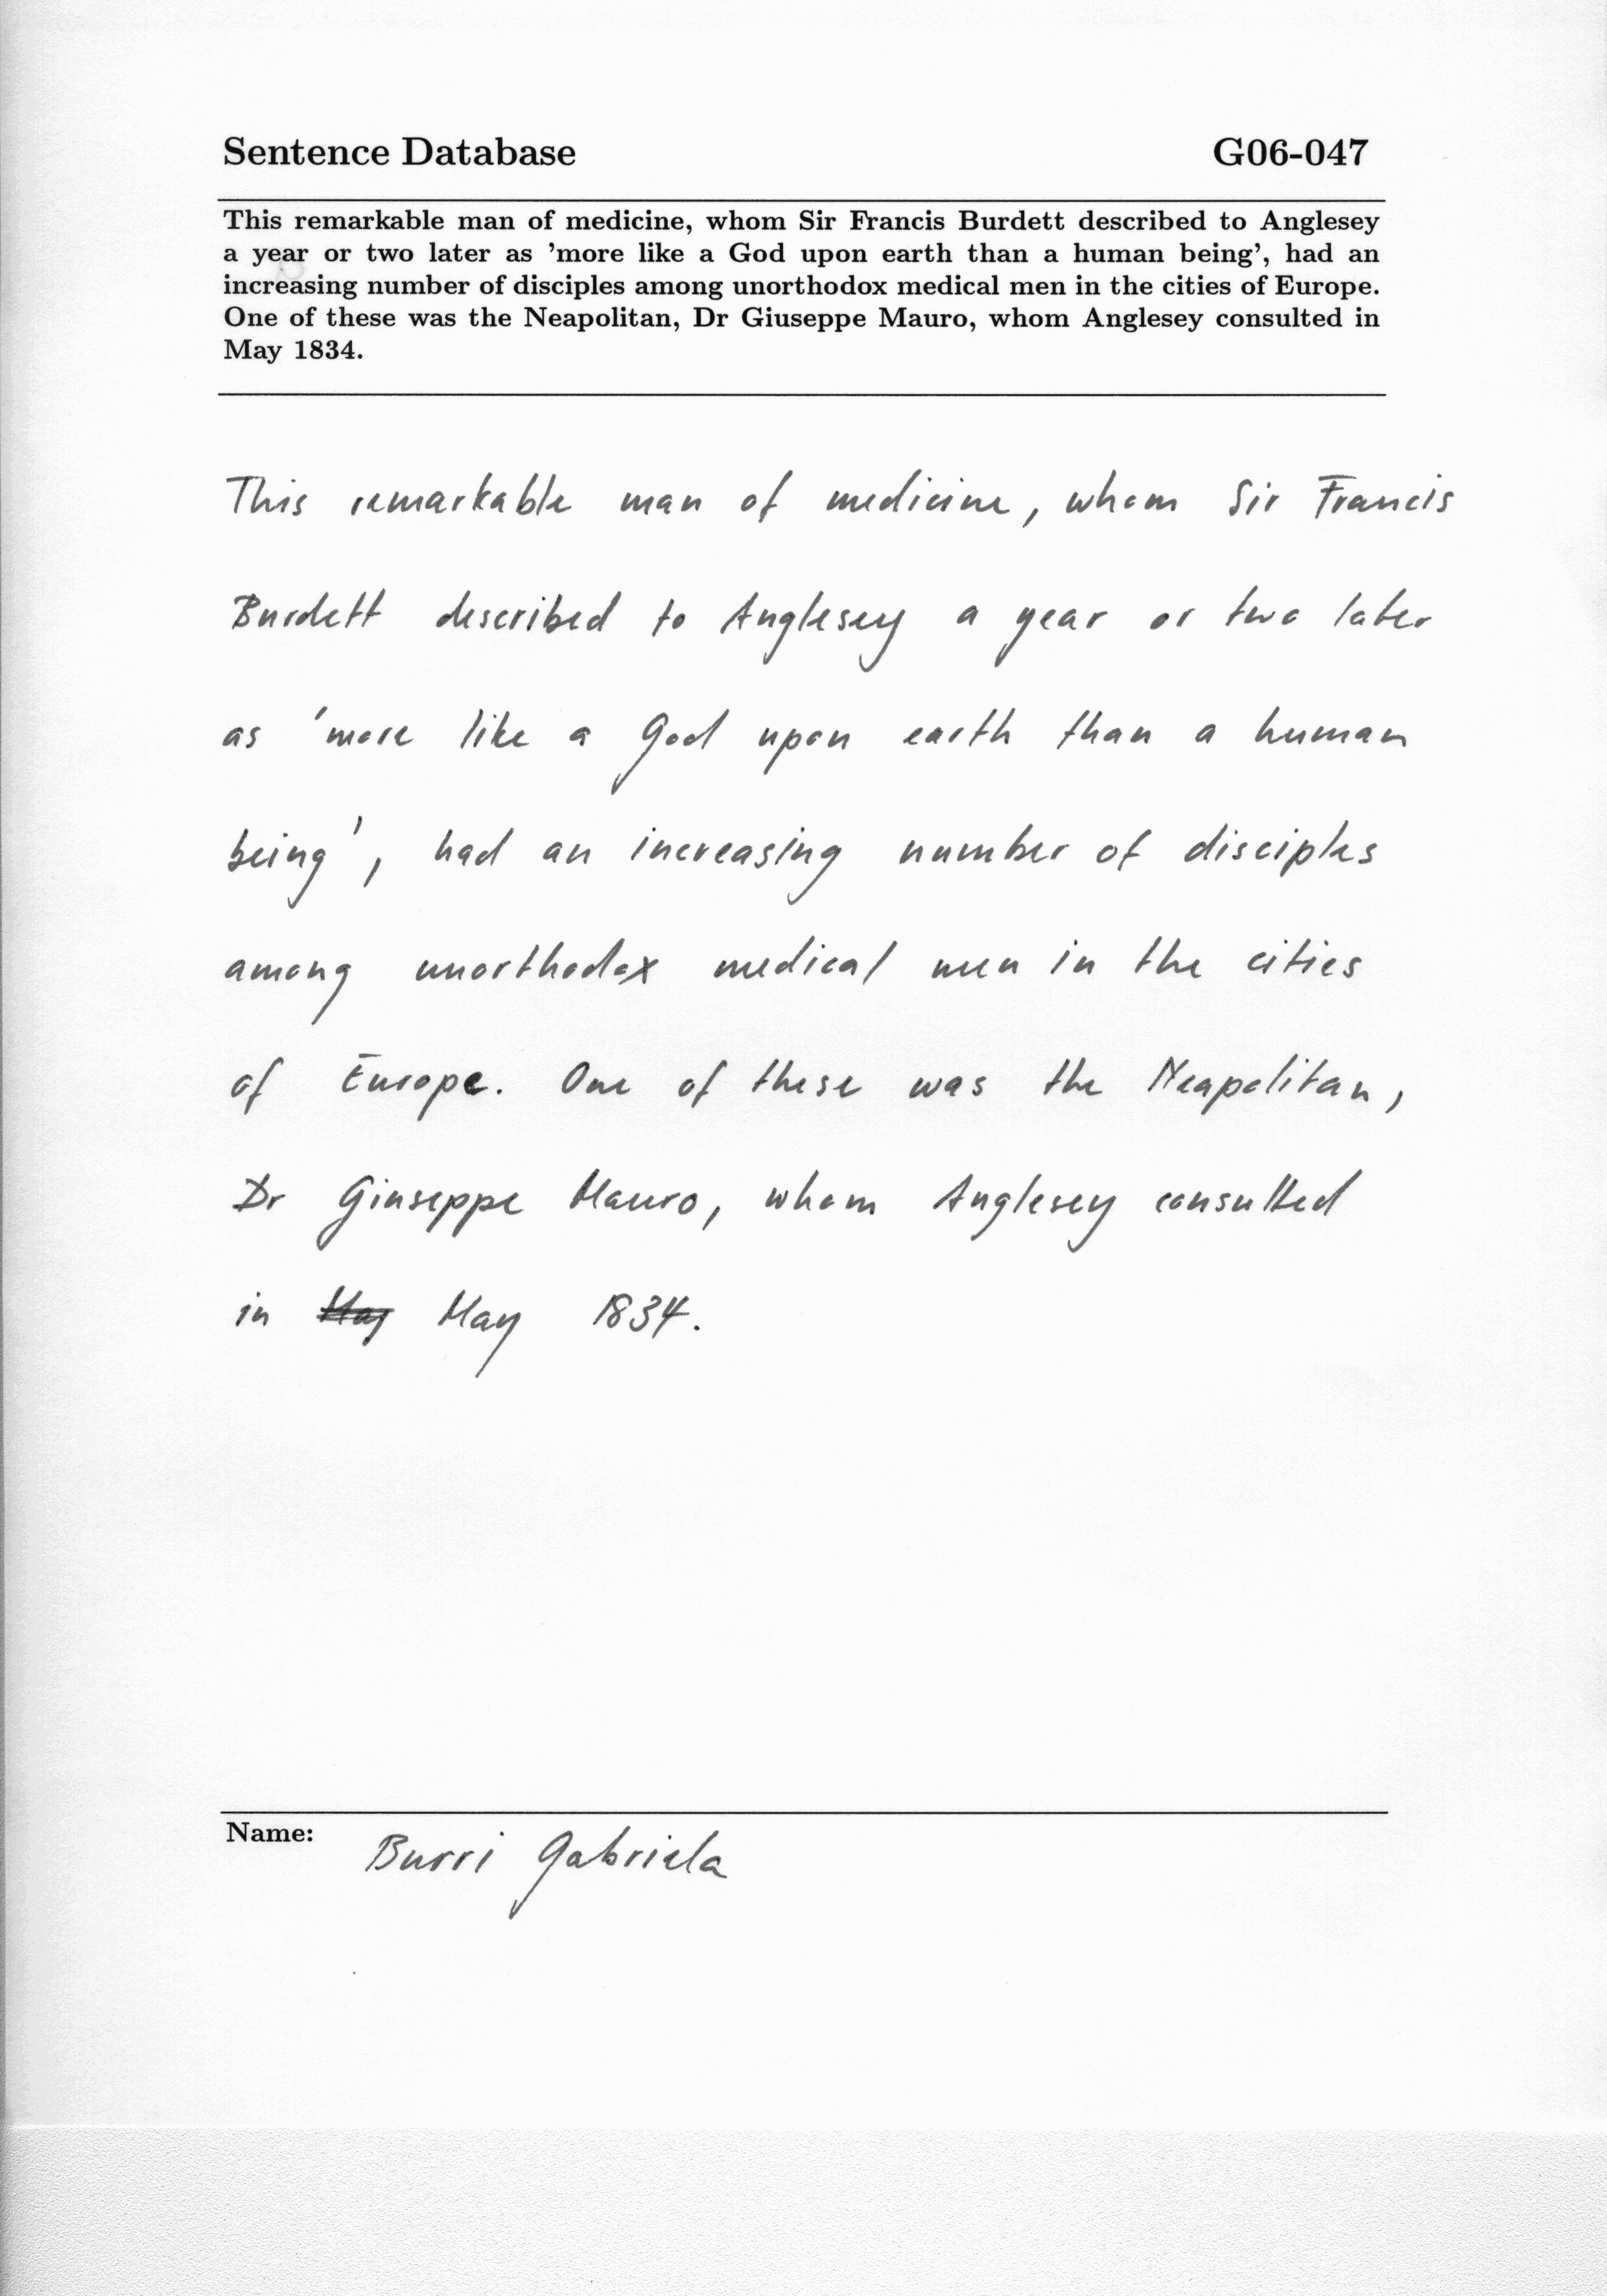 Sentence Database G06-047
This remarkable man of medicine, whom Sir Francis Burdett described to Anglesey
a year or two later as 'more like a God upon earth than a human being', had an
increasing number of disciples among unorthodox medical men in the cities of Europe.
One of these was the Neapolitan, Dr Giuseppe Mauro, whom Anglesey consulted in
May 1834.
This remarkable man of medicine, whom Sir Francis
Burdett described to Anglesey a year or two later
as 'more like a God upon earth than a human
being', had an increasing number of disciples
among unorthodox medical men in the cities
of Europe. One of these was the Neapolitan,
Dr Giuseppe Mauro, whom Anglesey consulted
in May May 1834.
Name: Burri Gabriela